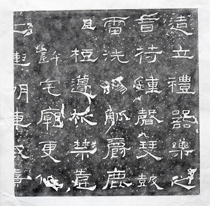 造立禮器樂之
音符鍾磬瑟鼓
雷洗觴觚爵鹿
柤梪籩柉禁壺
飾宅廟更作
朝車威熹